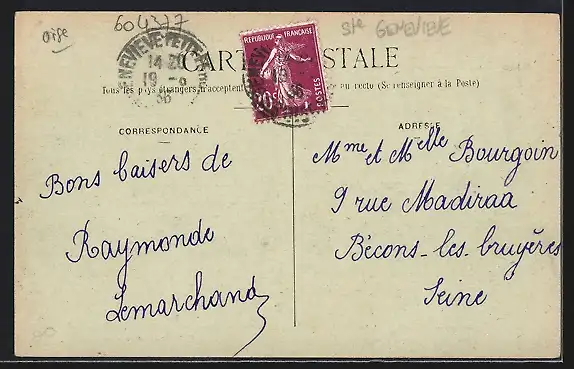 oise
604377
Ste GENEVIEVE
14 25
19 -8
36
RÉPUBLIQUE FRANÇAISE
20c
POSTES
Tous les pays étrangers n'acceptent au recto (Se renseigner à la Poste)
CORRESPONDANCE
Bons baisers de
Raymonde
Lemarchand
ADRESSE
Mme et Melle Bourgoin
9 rue Madiraa
Bécons-les-bruyères
Seine